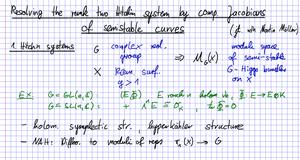 Resolving the rank two Hitchin system by comp. Jacobians
of semistable curves (jt with Martin Möller)
1. Hitchin systems G complex red. group ⇒ M_G(X) moduli space of semi-stable G-Higgs bundles on X
X Riem. surf. g > 1
EX: G = GL(n,ℂ) (E,Φ) E rank n holom. vb, Φ: E → E⊗K
G = SL(n,ℂ): + Λⁿ E ≅ O_X, tr Φ = 0
- holom. symplectic str. hyperkähler structure
- NAH: Diffeo. to moduli of reps π₁(X) → G